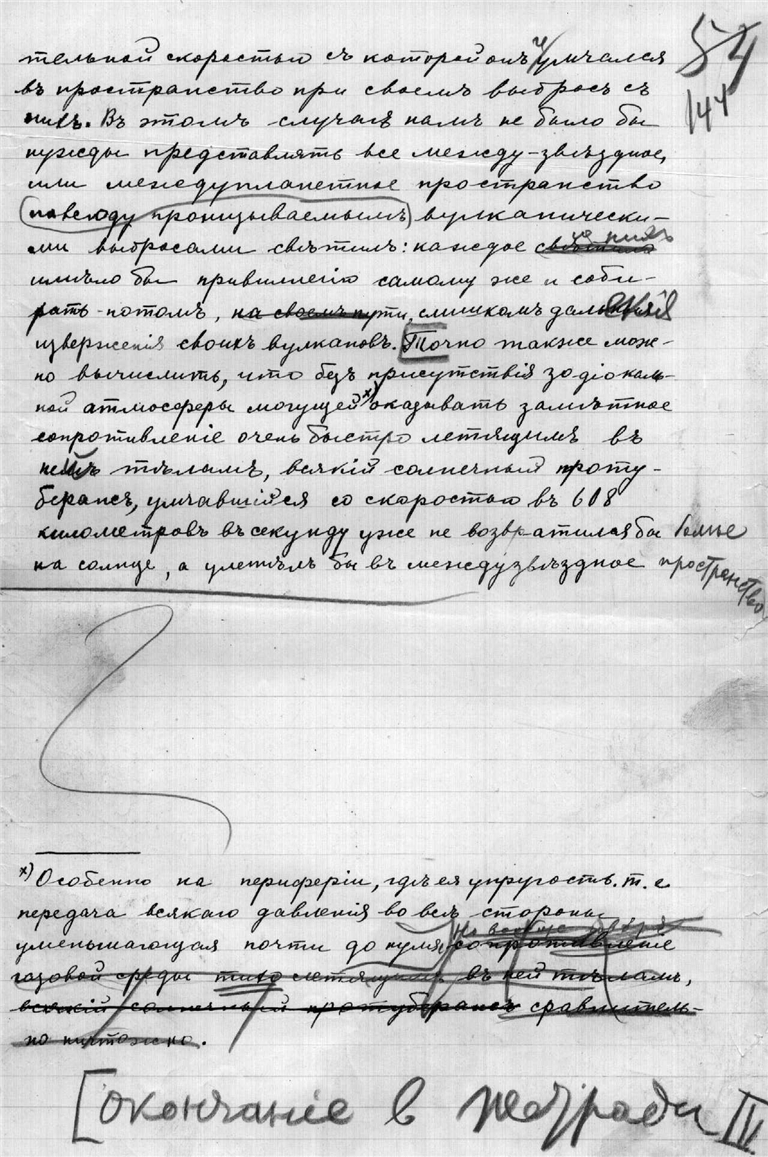 54
144
тельной скоростью съ которой онъ и умчался
въ пространство при своемъ выбросѣ съ
нихъ. Въ этомъ случаѣ намъ не было бы
нужды представлять все между-звѣздное,
или междупланетное пространство
повсюду пронизываемымъ вулканически-
ми выбросами свѣтилъ: каждое изъ нихъ
имѣло бы привиллегію самому же и соби-
рать потомъ, на своемъ пути, слишкомъ далекія
изверженія своихъ вулкановъ. Точно также мож-
но вычислить, что безъ присутствія зодіокаль-
ной атмосферы могущей х) оказывать замѣтное
сопротивленіе очень быстро летящимъ въ
ней тѣламъ, всякій солнечный проту-
берансъ, умчавшійся со скоростью въ 608
километровъ въ секунду уже не возвратился бы
на солнце, а улетѣлъ бы въ междузвѣздное пространство
х) Особенно на периферіи, гдѣ ея упругость, т. е
передача всякаго давленія во всѣ стороны
уменьшающая почти до нуля сопротивленіе
газовой среды тихо летящимъ въ ней тѣламъ,
всякій солнечный протуберансъ сравнитель-
но ничтожно.
[окончаніе в тетради IV.